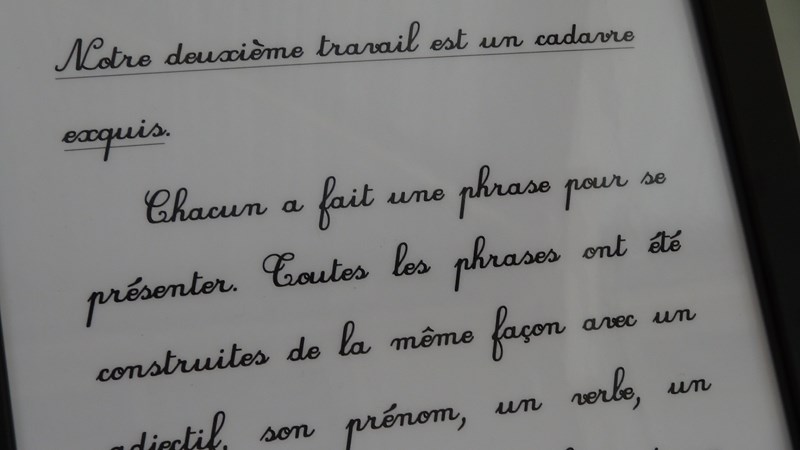 Notre deuxième travail est un cadavre
exquis.
Chacun a fait une phrase pour se
présenter. Toutes les phrases ont été
construites de la même façon avec un
adjectif, son prénom, un verbe, un